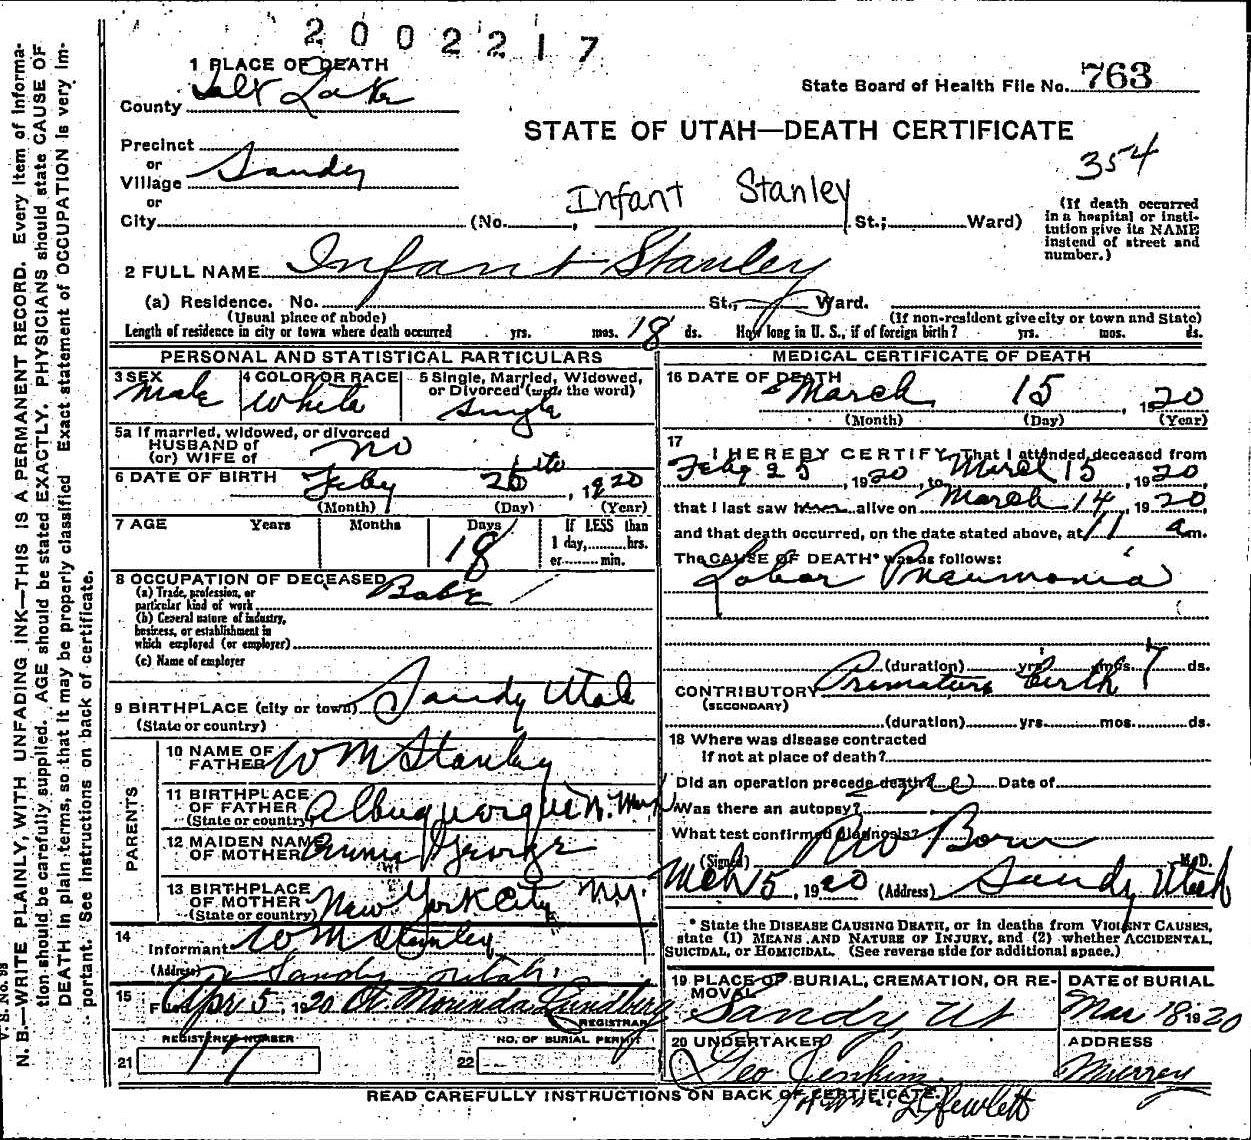 2002217
1 PLACE OF DEATH
County Salt Lake
State Board of Health File No. 763
STATE OF UTAH—DEATH CERTIFICATE
354
Precinct
or
Village Sandy
or
City (No. , Infant Stanley St.; Ward)
(If death occurred in a hospital or institution give its NAME instead of street and number.)
2 FULL NAME Infant Stanley
(a) Residence. No. St., Ward.
(Usual place of abode) (If non-resident give city or town and State)
Length of residence in city or town where death occurred yrs. mos. 18 ds. How long in U. S., if of foreign birth? yrs. mos. ds.
PERSONAL AND STATISTICAL PARTICULARS
3 SEX Male
4 COLOR OR RACE White
5 Single, Married, Widowed, or Divorced (write the word) Single
5a If married, widowed, or divorced
HUSBAND of
(or) WIFE of no
6 DATE OF BIRTH Feby 26 , 1920
(Month) (Day) (Year)
7 AGE Years Months Days 18 If LESS than 1 day, hrs. or min.
8 OCCUPATION OF DECEASED Babe
(a) Trade, profession, or particular kind of work
(b) General nature of industry, business, or establishment in which employed (or employer)
(c) Name of employer
9 BIRTHPLACE (city or town) Sandy Utah
(State or country)
PARENTS
10 NAME OF FATHER Wm Stanley
11 BIRTHPLACE OF FATHER (State or country) Albuquerque N. Mex
12 MAIDEN NAME OF MOTHER Annie George
13 BIRTHPLACE OF MOTHER (State or country) New York City N.Y.
14 Informant Wm Stanley
(Address) Sandy Utah.
15 Filed Apr 5, 1920 Morinda Lundberg
REGISTRAR
REGISTERED NUMBER 17
NO. OF BURIAL PERMIT
21 22
MEDICAL CERTIFICATE OF DEATH
16 DATE OF DEATH March 15 , 1920
(Month) (Day) (Year)
17 I HEREBY CERTIFY, That I attended deceased from
Feby 25 , 1920, to March 15, 1920,
that I last saw alive on March 14, 1920,
and that death occurred, on the date stated above, at 11 a m.
The CAUSE OF DEATH* was as follows:
Lobar Pneumonia
(duration) yrs. mos. 7 ds.
CONTRIBUTORY Premature Birth
(SECONDARY)
(duration) yrs. mos. ds.
18 Where was disease contracted
If not at place of death?
Did an operation precede death? no Date of
Was there an autopsy?
What test confirmed diagnosis?
(Signed) M.D.
Mch 15, 1920 (Address) Sandy Utah
* State the DISEASE CAUSING DEATH, or in deaths from VIOLENT CAUSES, state (1) MEANS AND NATURE OF INJURY, and (2) whether ACCIDENTAL, SUICIDAL, or HOMICIDAL. (See reverse side for additional space.)
19 PLACE OF BURIAL, CREMATION, OR REMOVAL Sandy, Ut
DATE of BURIAL Mar 18 1920
20 UNDERTAKER Geo Jenkins
ADDRESS Murray
READ CAREFULLY INSTRUCTIONS ON BACK OF CERTIFICATE.
Hewlett
V. S. No. 98
N. B.—WRITE PLAINLY, WITH UNFADING INK—THIS IS A PERMANENT RECORD. Every item of information should be carefully supplied. AGE should be stated EXACTLY. PHYSICIANS should state CAUSE OF DEATH in plain terms, so that it may be properly classified Exact statement of OCCUPATION is very important. See instructions on back of certificate.